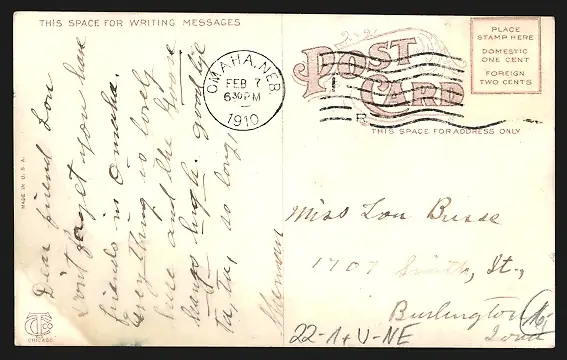 THIS SPACE FOR WRITING MESSAGES
Dear friend Lou
Don't forget you have
friends in Omaha.
Every thing is lovly
here and the Goose
hangs high. good bye
Ta, Ta, so long,
Sherman
MADE IN U.S.A.
CHICAGO
OMAHA, NEB.
FEB 7
630 PM
1910
POST CARD
THIS SPACE FOR ADDRESS ONLY
PLACE
STAMP HERE
DOMESTIC
ONE CENT
FOREIGN
TWO CENTS
Miss Lou Busse
1707 Smith, St.,
Burlington
Iowa
22-1+V-NE